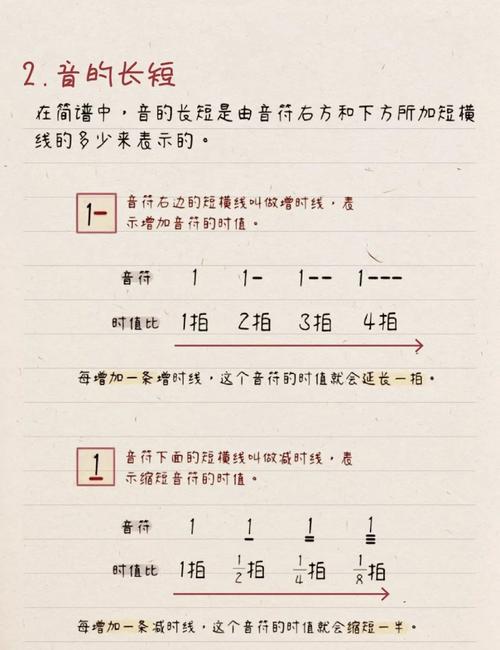 2.音的长短
在简谱中，音的长短是由音符右方和下方所加短横
线的多少来表示的。
1-
音符右边的短横线叫做增时线，表
示增加音符的时值。
音符 1 1- 1-- 1---
时值比 1拍 2拍 3拍 4拍
每增加一条增时线，这个音符的时值就会延长一拍。
1
音符下面的短横线叫做减时线，表
示缩短音符的时值。
音符 1 1 1 1
时值比 1拍 1/2拍 1/4拍 1/8拍
每增加一条减时线，这个音符的时值就会缩短一半。